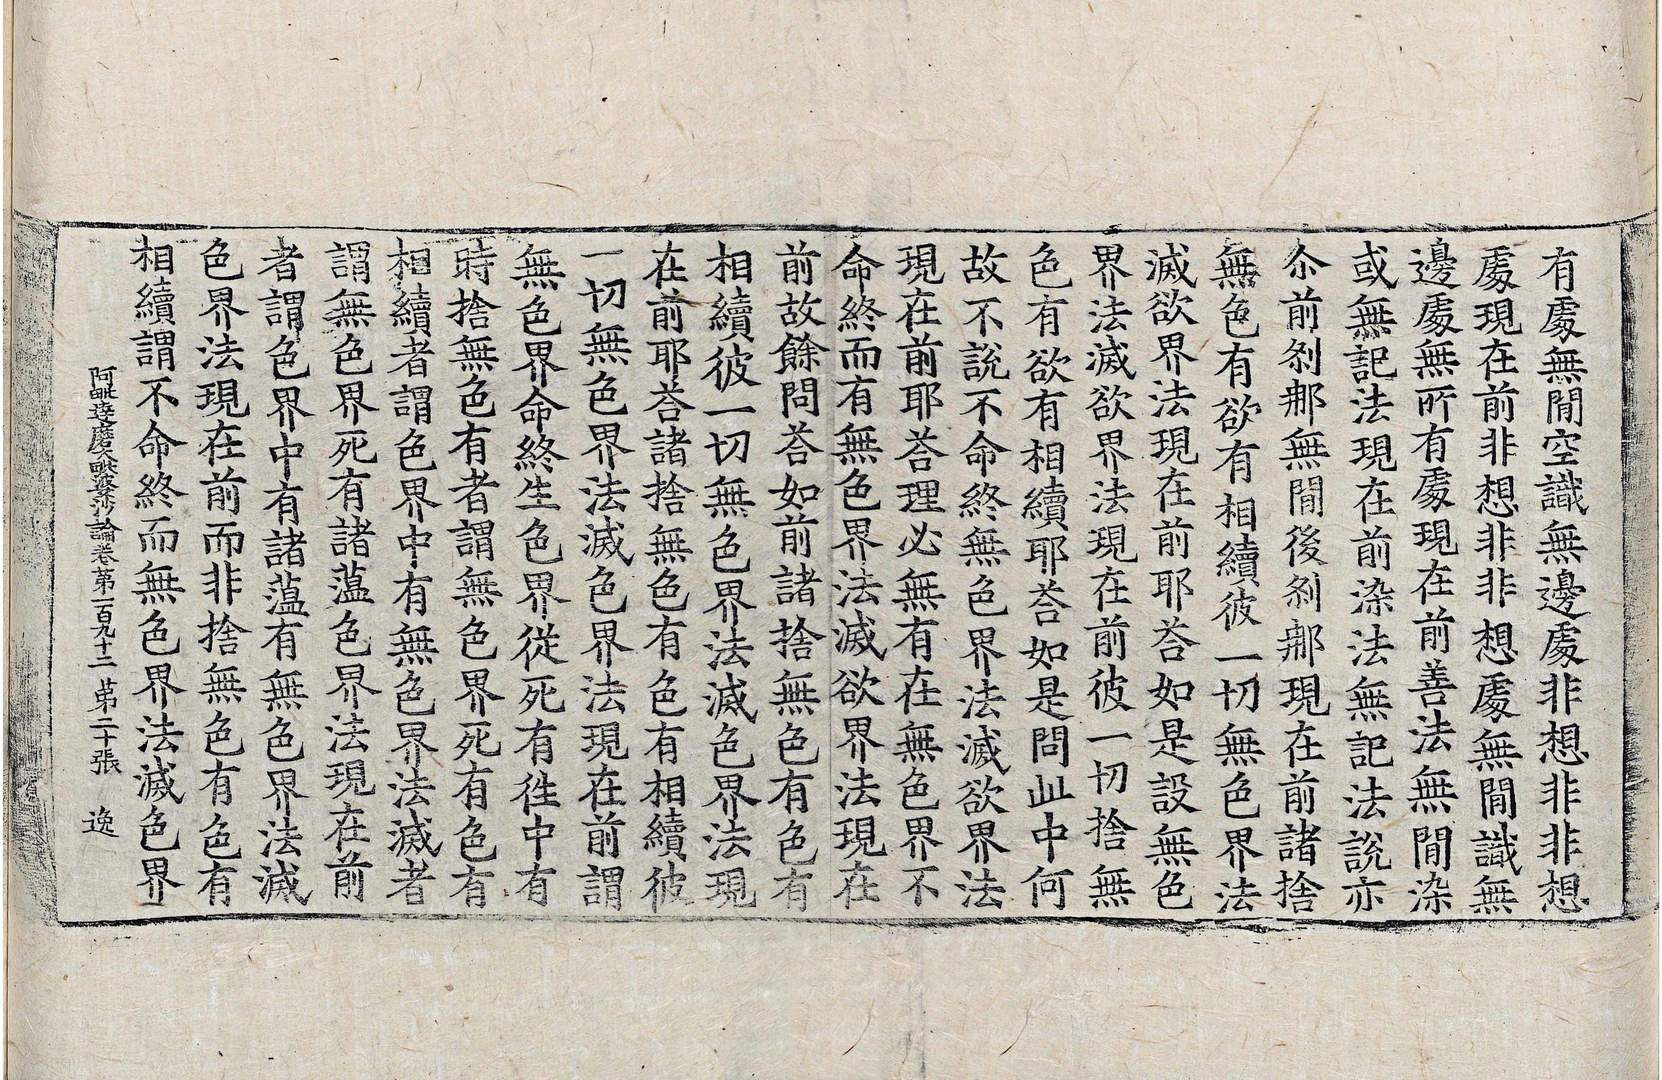 有處無閒空識無邊處非想非非想
處現在前非想非非想處無閒識無
邊處無所有處現在前善法無閒染
或無記法現在前染法無記法說亦
尒前刹那無閒後刹那現在前諸捨
無色有欲有相續彼一切無色界法
滅欲界法現在前耶荅如是設無色
界法滅欲界法現在前彼一切捨無
色有欲有相續耶荅如是問此中何
故不說不命終無色界法滅欲界法
現在前耶荅理必無有在無色界不
命終而有無色界法滅欲界法現在
前故餘問荅如前諸捨無色有色有
相續彼一切無色界法滅色界法現
在前耶荅諸捨無色有色有相續彼
一切無色界法滅色界法現在前謂
無色界命終生色界從死有徃中有
時捨無色有者謂無色界死有色有
相續者謂色界中有無色界法滅者
謂無色界死有諸薀色界法現在前
者謂色界中有諸薀有無色界法滅
色界法現在前而非捨無色有色有
相續謂不命終而無色界法滅色界
阿毗達磨大毗婆沙論卷第一百九十二 第二十張 逸